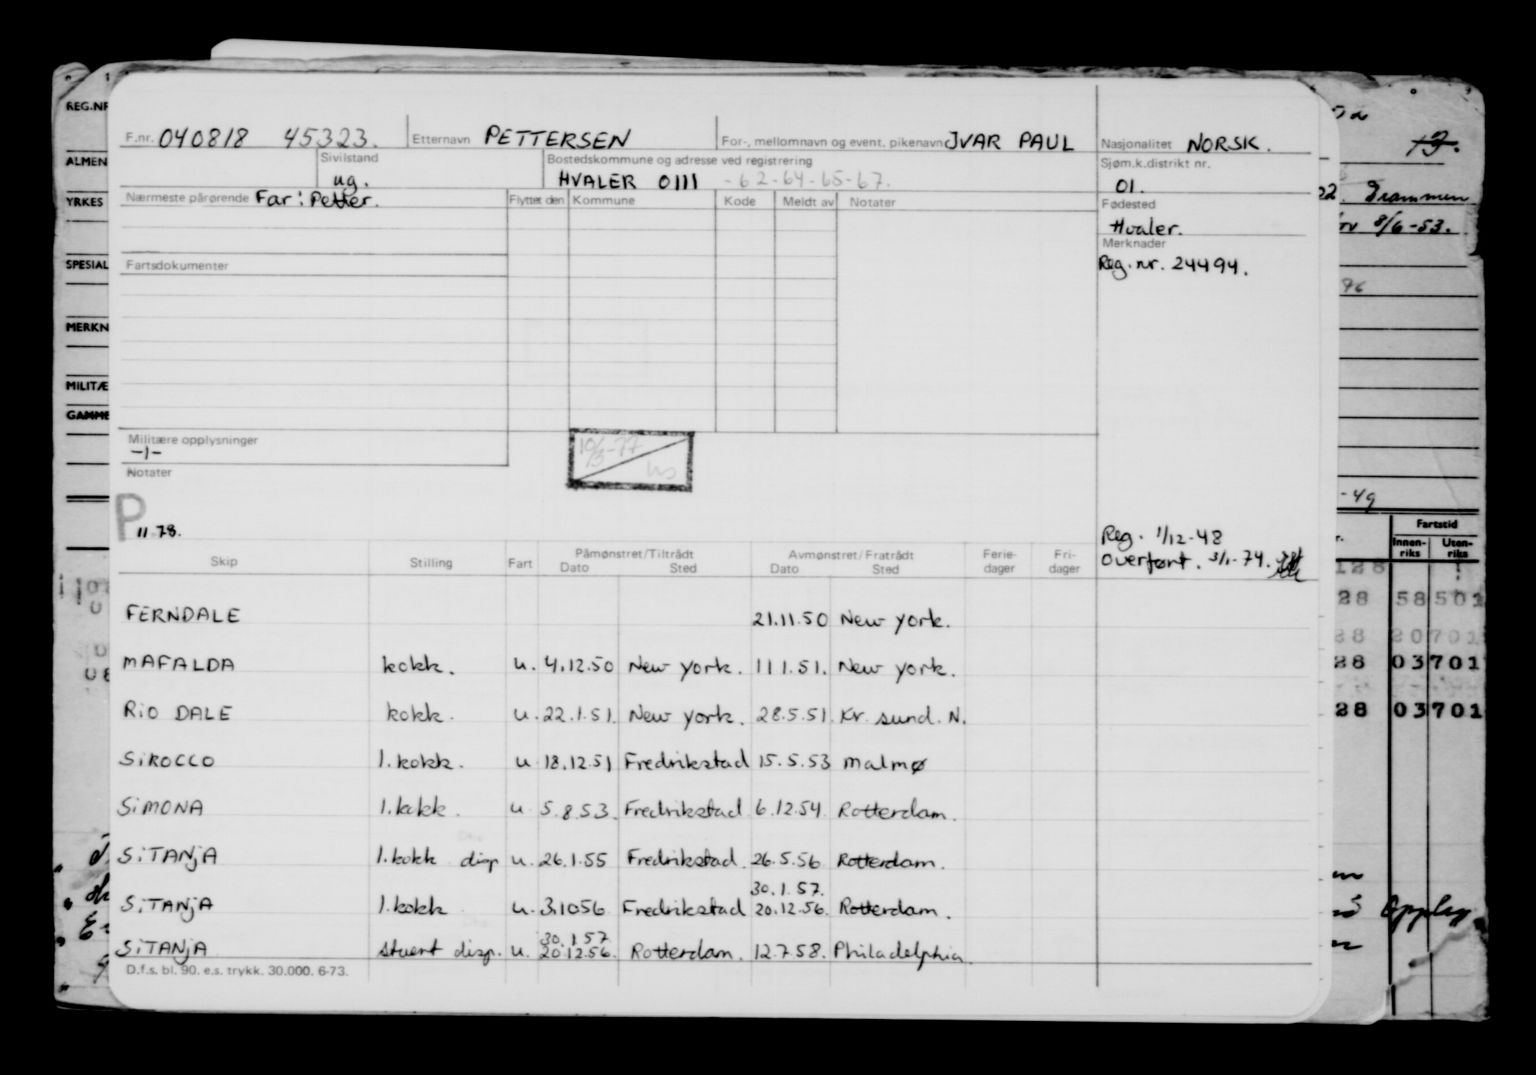 REG.NR
ALMEN
YRKES
SPESIAL
MERKN
MILITÆ
GAMME
F.nr. 040818 45323. Etternavn PETTERSEN For-, mellomnavn og event. pikenavn IVAR PAUL Nasjonalitet NORSK.
Sivilstand ug. Bostedskommune og adresse ved registrering HVALER 0111 -62-64-65-67. Sjøm.k.distrikt nr. 01.
Nærmeste pårørende Far: Petter. Flyttet den Kommune Kode Meldt av Notater Fødested Hvaler.
Merknader
Fartsdokumenter Reg.nr. 24494.
Militære opplysninger
-1-
Notater
10/3-77
P
11 78.
Reg. 1/12-48
Overført. 3/1-74.
Skip Stilling Fart Påmønstret/Tiltrådt Dato Sted Avmønstret/Fratrådt Dato Sted Ferie-dager Fri-dager
FERNDALE 21.11.50 New York.
MAFALDA kokk. u. 4.12.50 New York. 11 1.51. New York.
RIO DALE kokk. u. 22.1.51. New York. 28.5.51. Kr sund. N.
SIROCCO 1.kokk. u. 18.12.51 Fredrikstad 15.5.53 Malmø
SIMONA 1.kokk. u. 5.8.53. Fredrikstad 6.12.54 Rotterdam.
SITANJA 1.kokk disp u. 26.1.55 Fredrikstad. 26.5.56 Rotterdam.
30.1.57.
SITANJA 1.kokk u. 3.1056 Fredrikstad 20.12.56. Rotterdam.
30.1 57
SITANJA stuert disp. u. 20.12.56. Rotterdam. 12.7.58. Philadelphia
D.f.s. bl. 90. e.s. trykk. 30.000. 6-73.
13.
22. Drammen
8/6-53.
-49
Fartstid
Innen-riks Uten-riks
128
28 58 501
28 20 701
28 03 701
28 03 701
Opplag